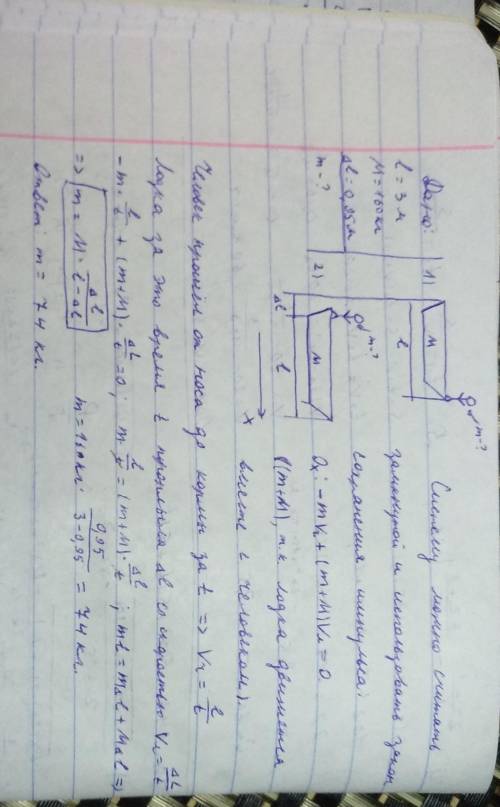 Дано:
l = 3 м
M = 160 кг
Δl = 0,95 м
m - ?
1)
M
l
m-?
2)
M
m-?
Δl
l
x
Систему можно считать
замкнутой и использовать закон
сохранения импульса:
Ox: -mV₁ + (m+M)V₂ = 0
((m+M), т.к лодка движется
вместе с человеком)
Человек прошёл от носа до кормы за t => V₁ = l/t
Лодка за это время t проплыла Δl со скоростью V₂ = Δl/t
-m · l/t + (m+M) · Δl/t = 0; m l/t = (m+M) · Δl/t ; ml = mΔl + MΔl =>
=> m = M · Δl/(l-Δl) m = 160 кг · 0,95/(3-0,95) = 74 кг.
Ответ: m = 74 кг.